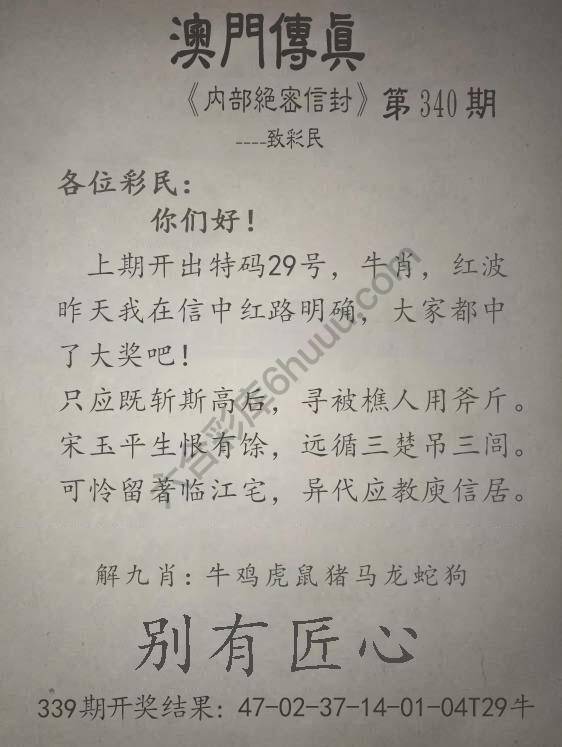 澳門傳真
《内部絕密信封》第340期
----致彩民
各位彩民：
你们好！
上期开出特码29号，牛肖，红波
昨天我在信中红路明确，大家都中
了大奖吧！
只应既斩斯高后，寻被樵人用斧斤。
宋玉平生恨有馀，远循三楚吊三闾。
可怜留著临江宅，异代应教庾信居。
六合彩库6huuu.com
解九肖：牛鸡虎鼠猪马龙蛇狗
别有匠心
339期开奖结果：47-02-37-14-01-04T29牛